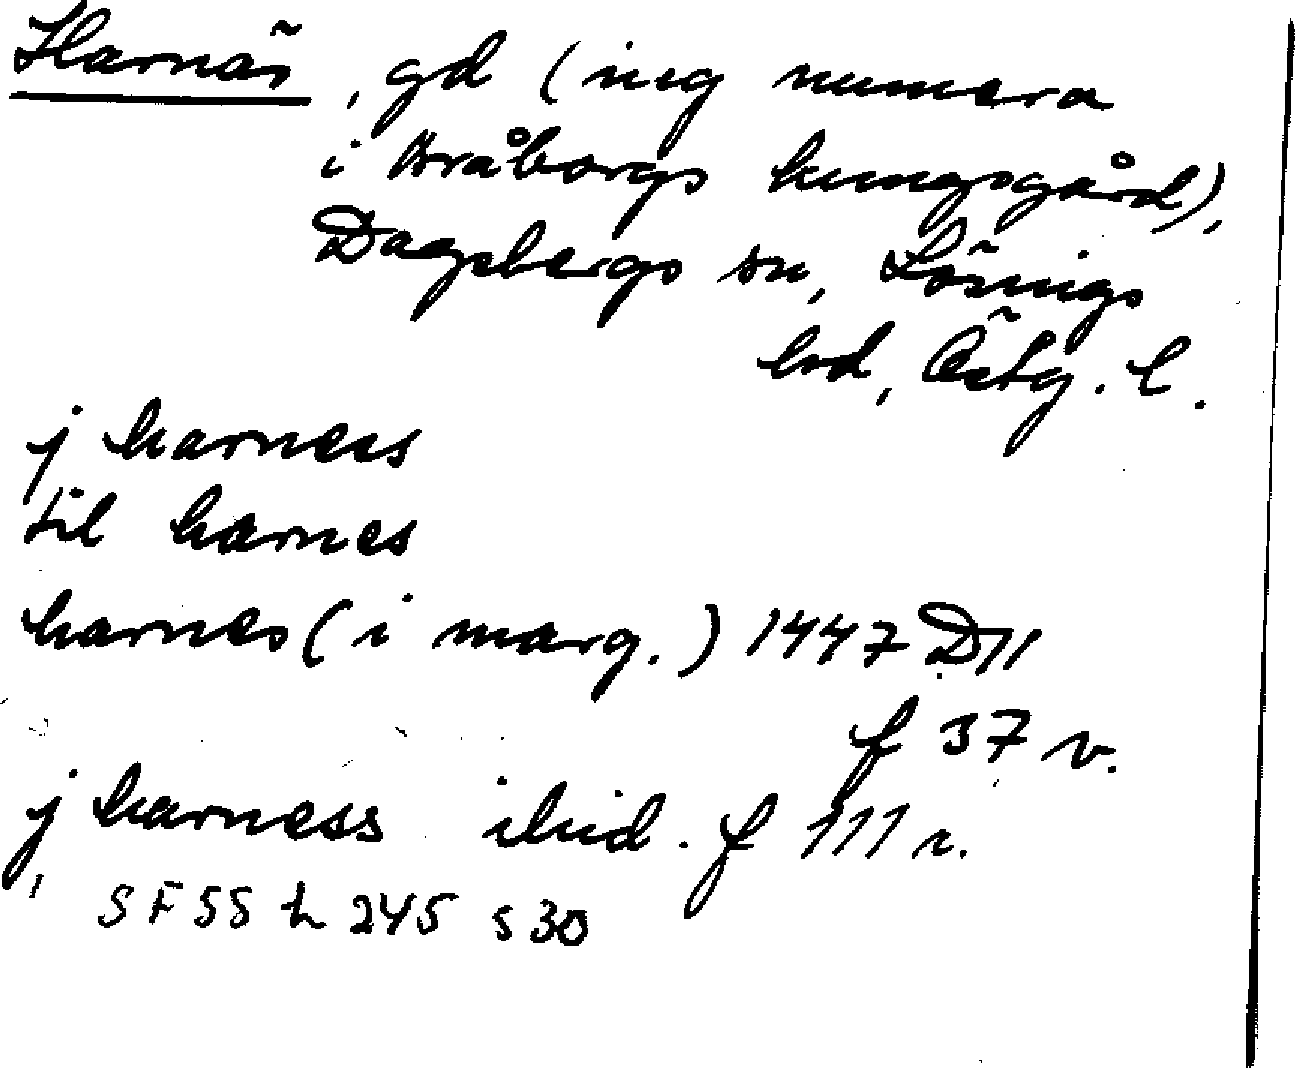 Harnäs, gd (ing numera
i Bråborgs kungsgård),
Dagsbergs sn, Lösings
hd, Östg. l.
j harness
til harnes
harnes (i marg.) 1447 D11
f 37 v.
j harness ibid. f 111 r.
SFSS h 245 s 30